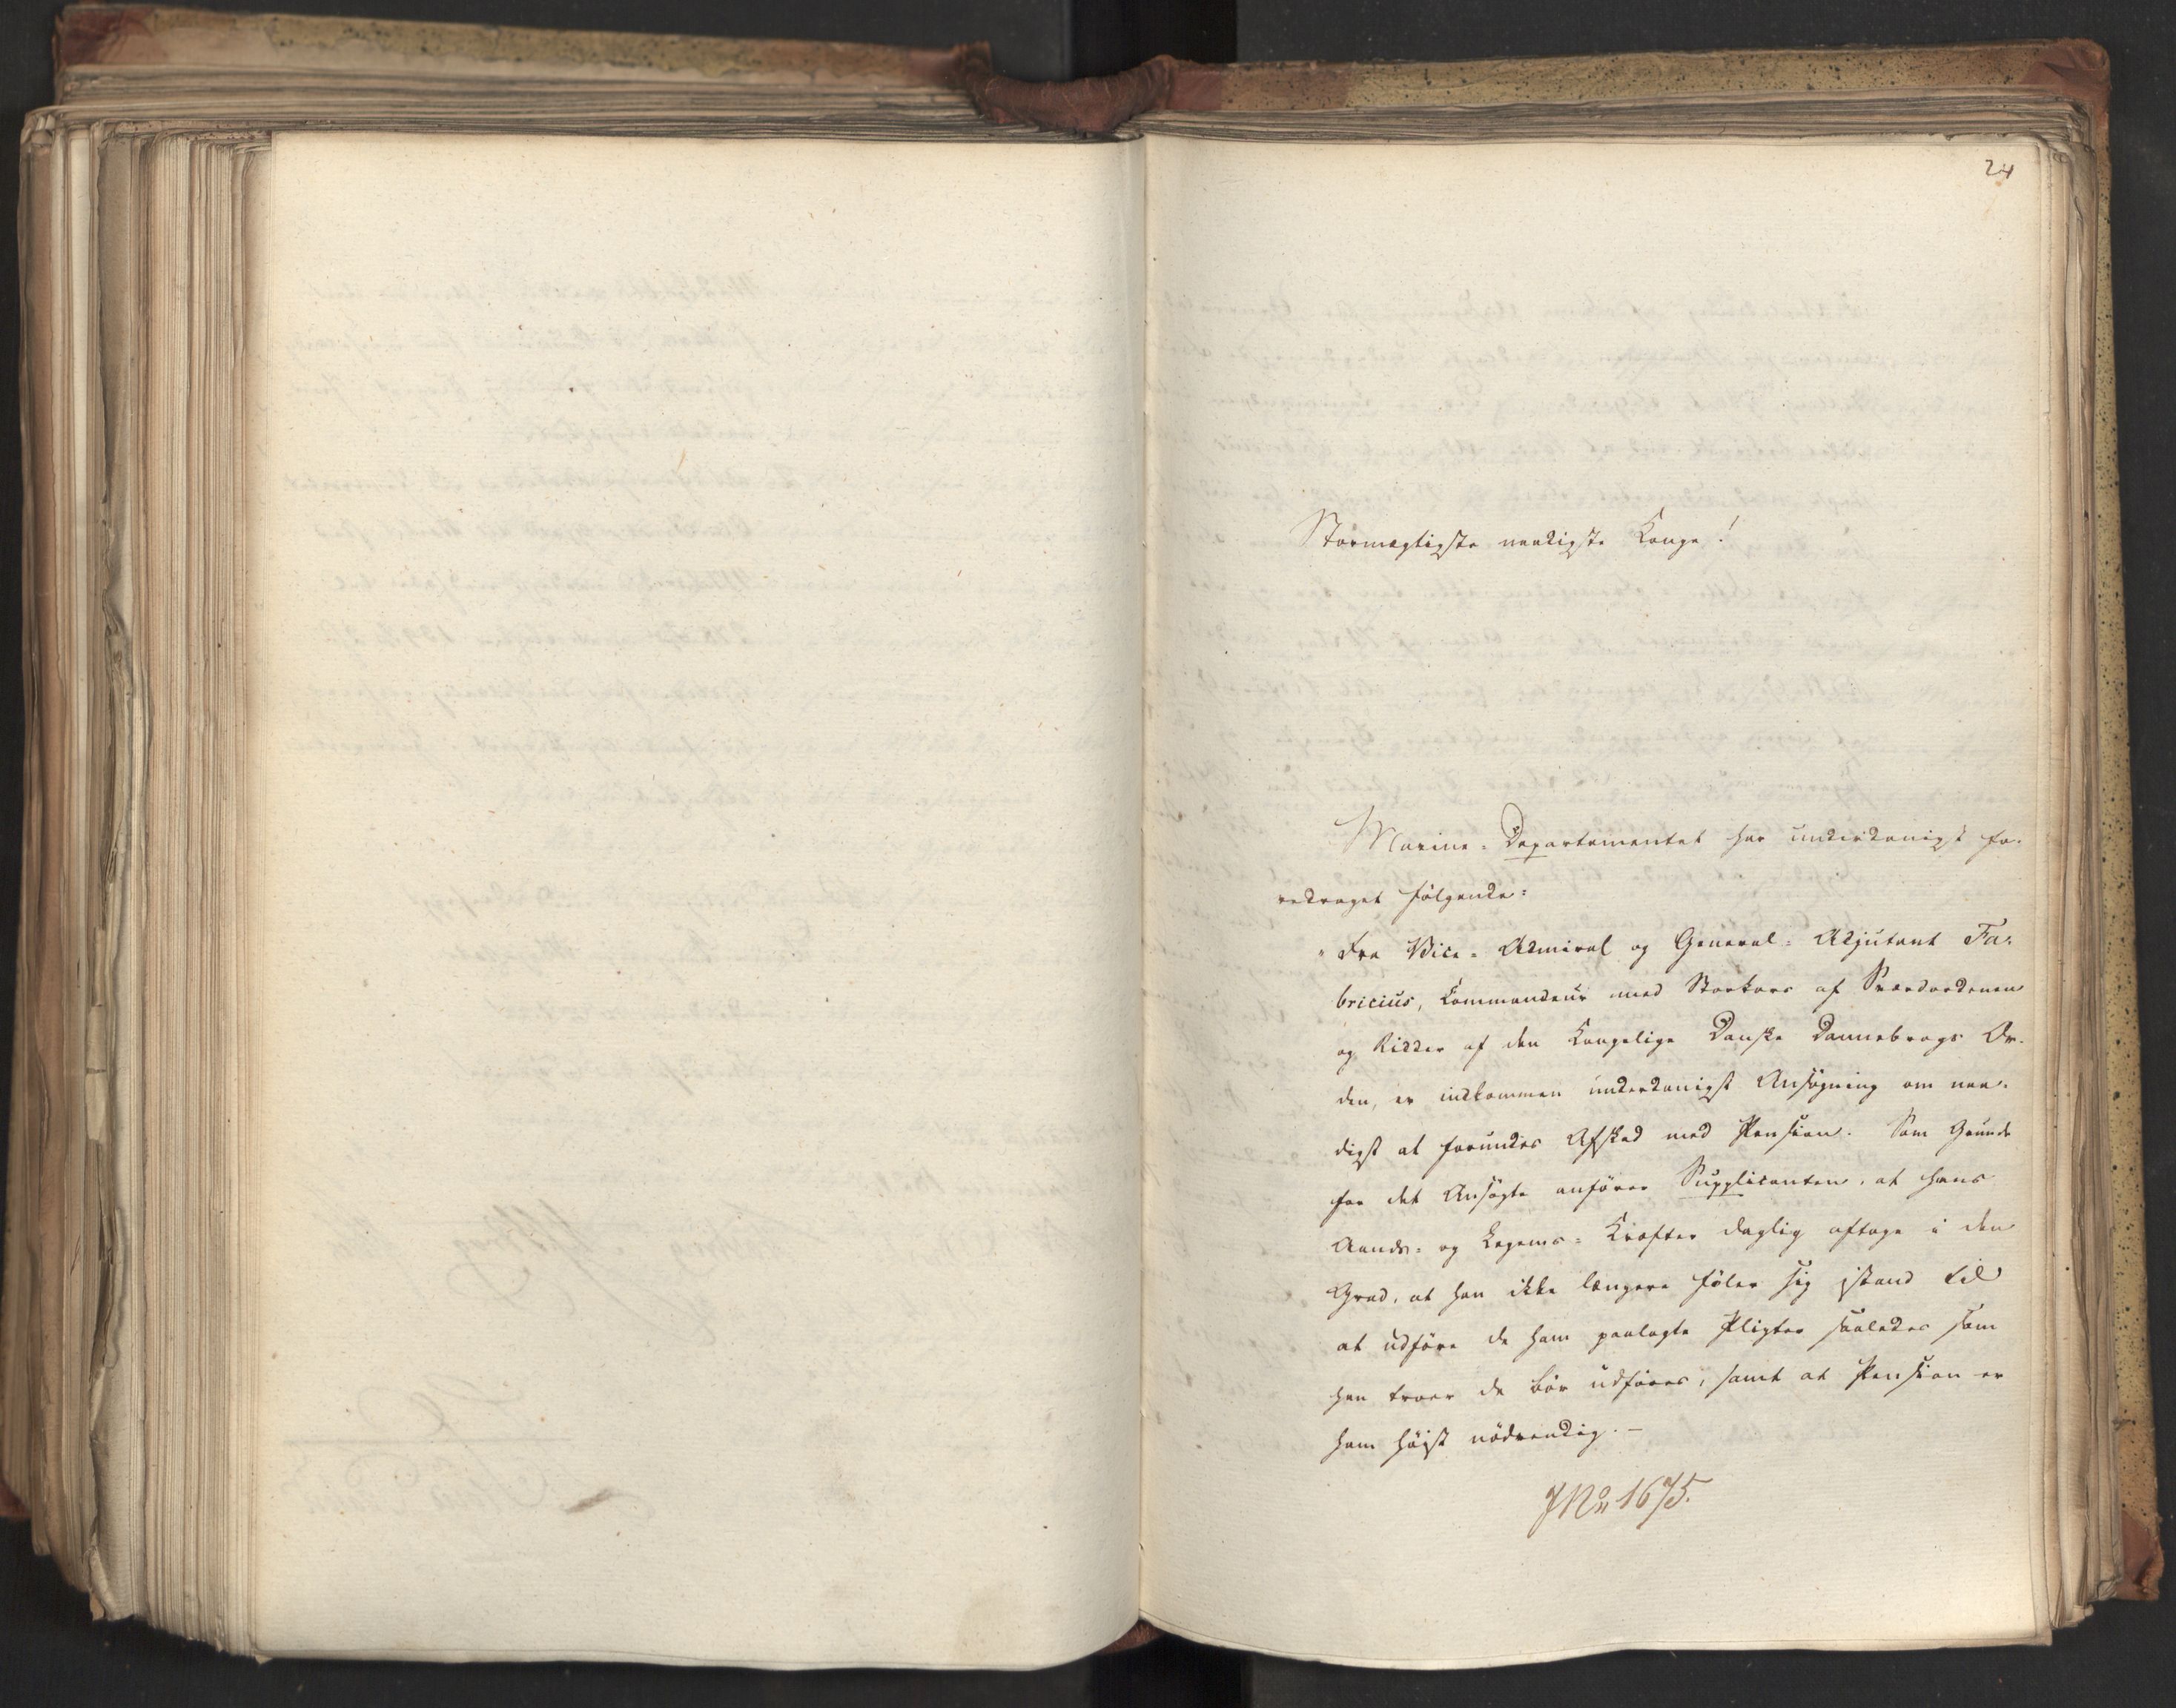 24
Stormægtigste naadigste Konge!
Marine-Departementet har underdanigst fo-
redraget følgende:
"Fra Vice-Admiral og General-Adjutant Fa-
bricius, Kommandeur med Storkors af Sværdordenen
og Ridder af den Kongelige Danske Dannebrogs Or-
den, er indkommen underdanigst Ansøgning om naa-
digst at forundes Afsked med Pension. Som Grunde
for det Ansøgte anfører Supplicanten, at hans
Aands- og Legems-Kræfter daglig aftage i den
Grad, at han ikke længere føler sig istand til
at udføre de ham paalagte Pligter saaledes som
han troer de bør udføres, samt at Pension er
ham høist nødvendig.-
JNo 1675.